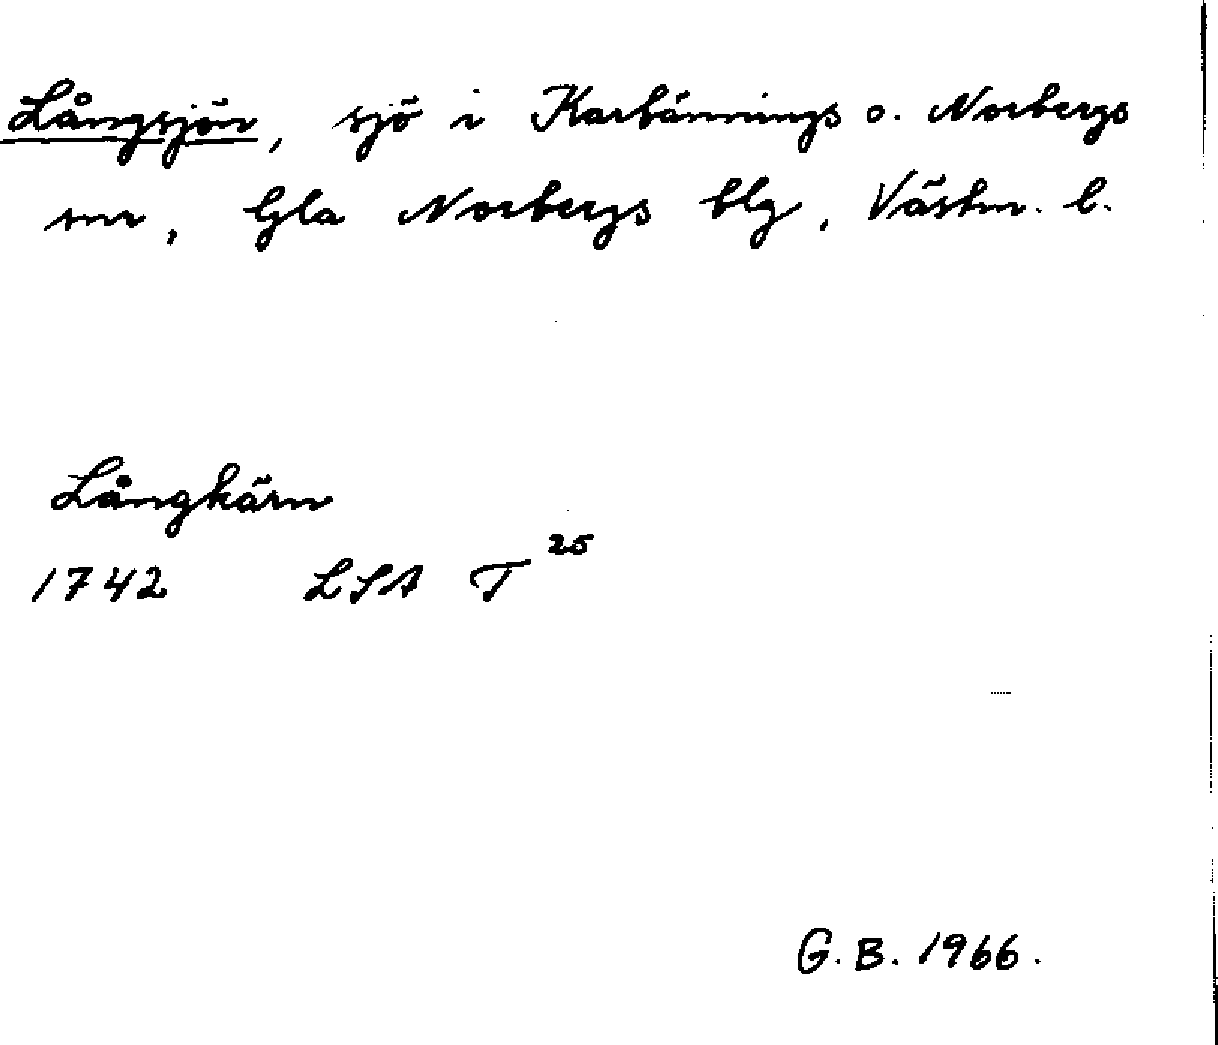 Långsjön, sjö i Karbännings o. Norbergs
snr, Gla Norbergs blg, Västm. l.
Långkärn
1742 LSA T 25
G. B. 1966.